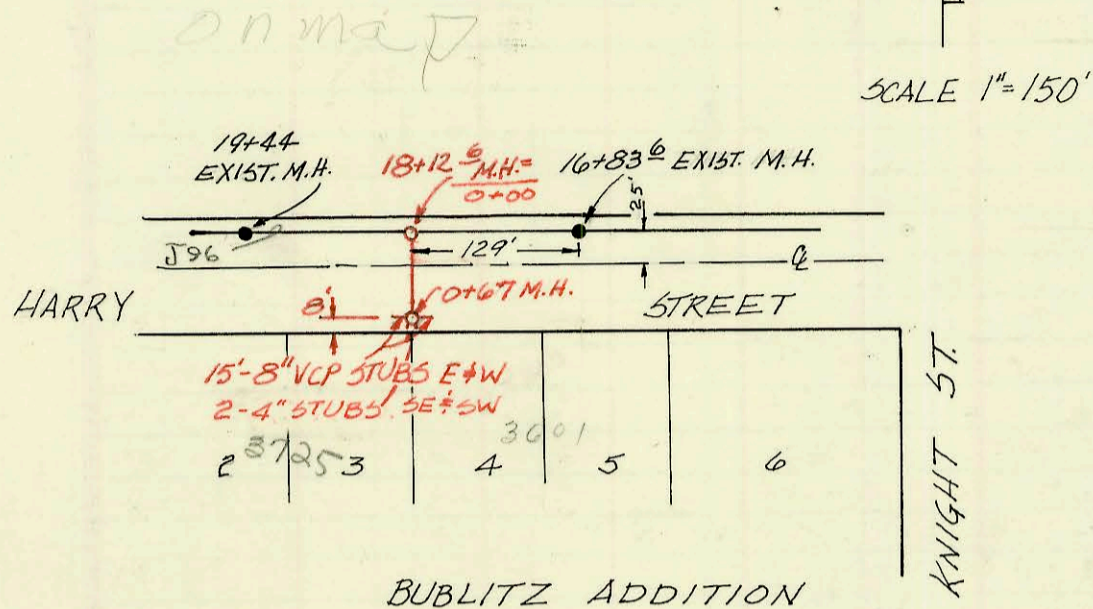 on map
SCALE 1"=150'
19+44
EXIST. M.H.
18+12 6 M.H.=
0+00
16+83 6 EXIST. M.H.
25'
129'
J96
℄
HARRY
8'
0+67 M.H.
STREET
15'-8" VCP STUBS E & W
2-4" STUBS SE & SW
3725
3601
2 3 4 5 6
KNIGHT ST.
BUBLITZ ADDITION